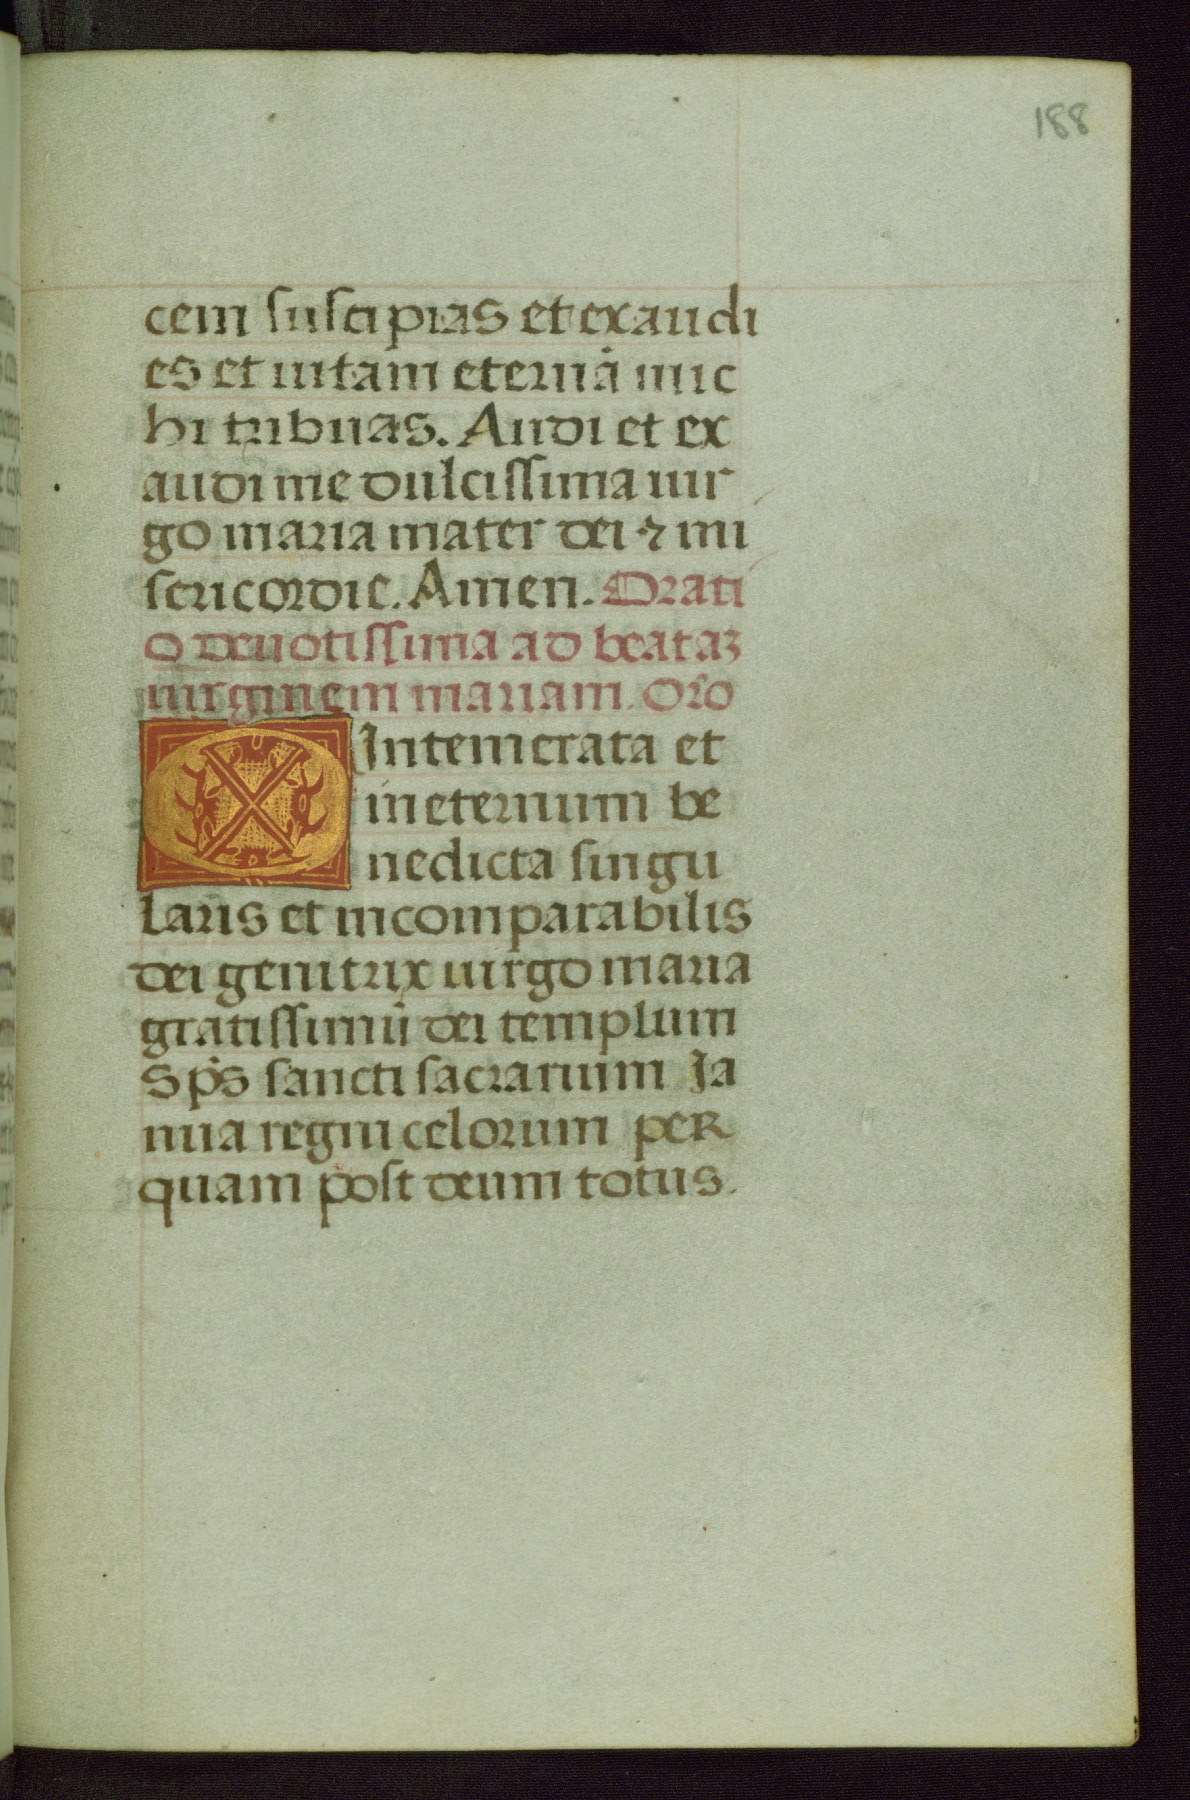 188
cem suscipias et exaudi
es et uitam eternā mic
hi tribuas. Audi et ex
audi me dulcissima uir
go maria mater dei ⁊ mi
sericordie. Amen. Orati
o deuotissima ad beataꝫ
uirginem mariam. Or̄o
O Intemerata et
in eternum be
nedicta singu
laris et incomparabilis
dei genitrix uirgo maria
gratissimū dei templum
Sp̄s sancti sacrarium Ja
nua regni celorum per
quam post deum totus.